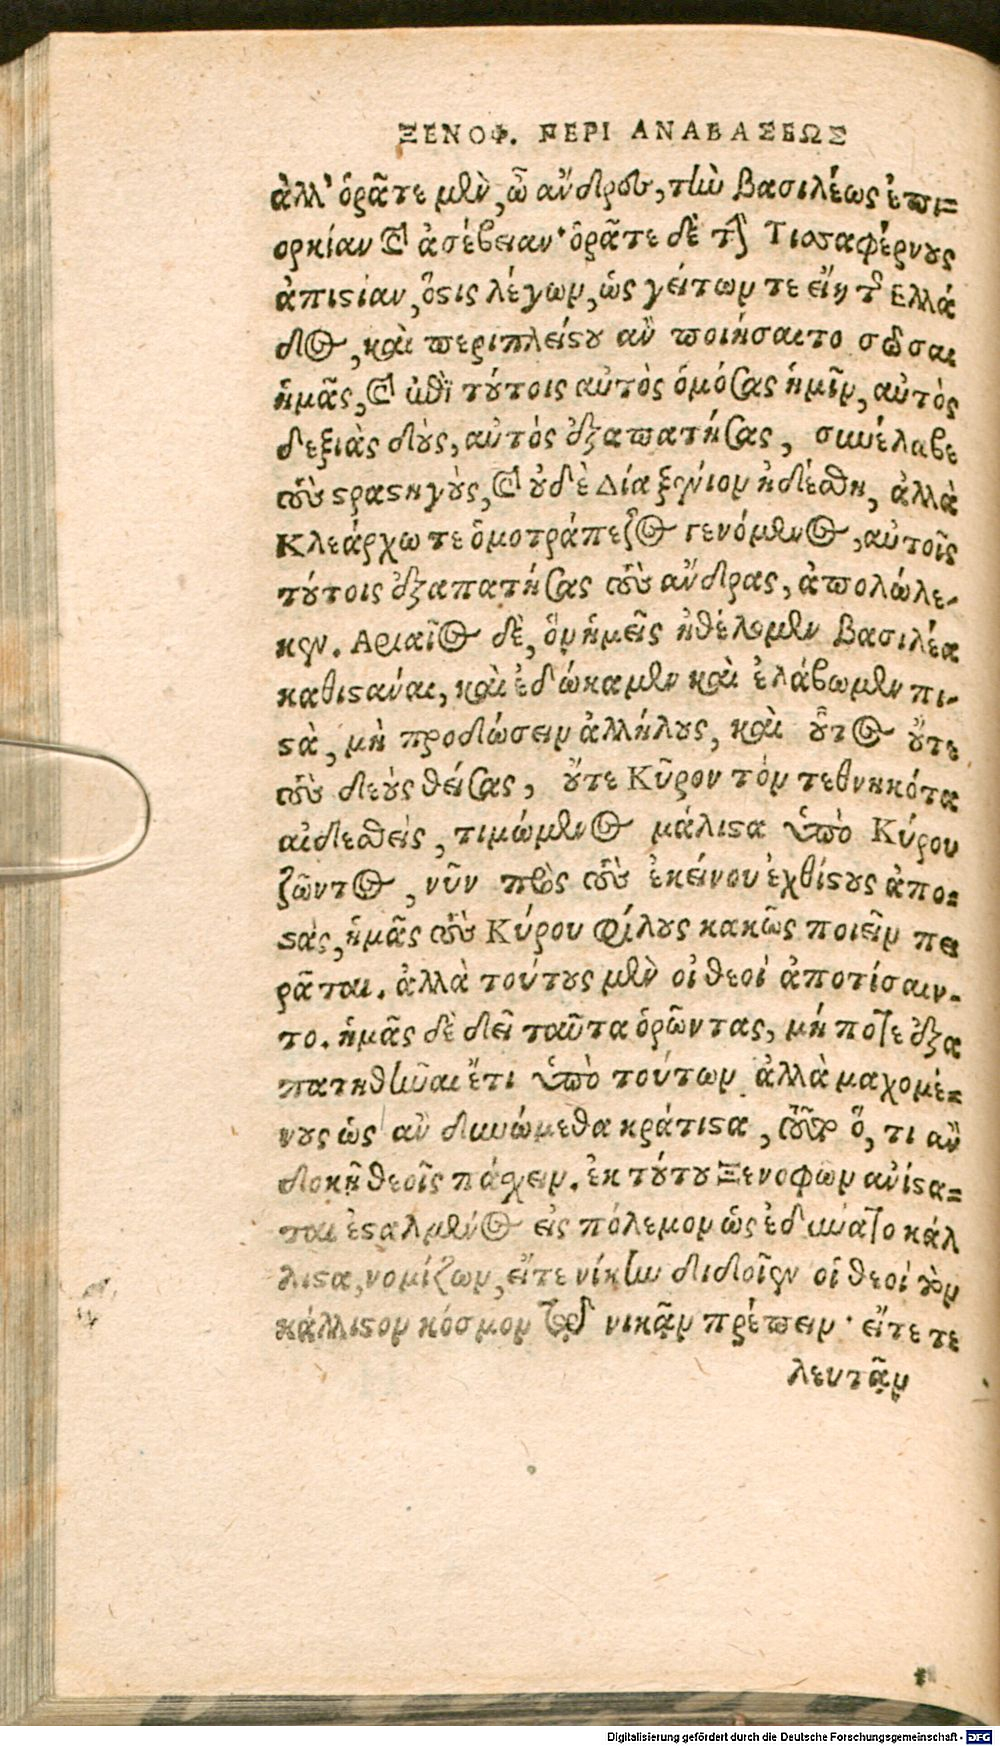 ΞΕΝΟΦ. ΠΕΡΙ ΑΝΑΒΑΣΕΩΣ
ἀλλ' ὁρᾶτε μὲν, ὦ ἄνδρες, τὴν βασιλέως ἐπι-
ορκίαν καὶ ἀσέβειαν· ὁρᾶτε δὲ τὴν Τισσαφέρνους
ἀπιστίαν, ὅστις λέγων, ὡς γείτων τε εἴη τῆς Ελλά
δος, καὶ περιπλείστου ἂν ποιήσαιτο σῶσαι
ἡμᾶς, καὶ ἐπὶ τούτοις αὐτὸς ὁμόσας ἡμῖν, αὐτὸς
δεξιὰς δοὺς, αὐτὸς ἐξαπατήσας, συνέλαβε
τοὺς στρατηγοὺς, καὶ οὐδὲ Δία ξένιον ᾐδέσθη, ἀλλὰ
Κλεάρχω τε ὁμοτράπεζος γενόμενος, αὐτοῖς
τούτοις ἐξαπατήσας τοὺς ἄνδρας, ἀπολώλε-
κεν. Αριαῖος δὲ, ὃν ἡμεῖς ἠθέλομεν βασιλέα
καθιστάναι, καὶ ἐδώκαμεν καὶ ἐλάβωμεν πι-
στὰ, μὴ προδώσειν ἀλλήλους, καὶ οὗτος οὔτε
τοὺς θεοὺς δείσας, οὔτε Κῦρον τὸν τεθνηκότα
αἰδεσθεὶς, τιμώμενος μάλιστα ὑπὸ Κύρου
ζῶντος, νῦν πρὸς τοὺς ἐκείνου ἐχθίστους ἀπο-
στὰς, ἡμᾶς τοὺς Κύρου φίλους κακῶς ποιεῖν πει
ρᾶται. ἀλλὰ τούτους μὲν οἱ θεοὶ ἀποτίσαιν-
το. ἡμᾶς δὲ δεῖ ταῦτα ὁρῶντας, μή ποτε ἐξα
πατηθῆναι ἔτι ὑπὸ τούτων ἀλλὰ μαχομέ-
νους ὡς ἂν δυνώμεθα κράτιστα, τοῦτο ὅ, τι ἂν
δοκῇ θεοῖς πάσχειν. ἐκ τούτου Ξενοφῶν ἀνίστα-
ται ἐσταλμένος εἰς πόλεμον ὡς ἐδύνατο κάλ
λιστα, νομίζων, εἴτε νίκην διδοῖεν οἱ θεοὶ τὸν
κάλλιστον κόσμον τῷ νικᾷν πρέπειν· εἴτε τε
λευτᾷν
Digitalisierung gefördert durch die Deutsche Forschungsgemeinschaft - DFG